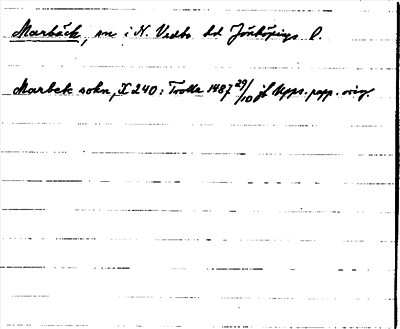 Marbäck, sn i N. Vedbo hd Jönköpings l.
Marbek sokn, X 240: Trolle 1487 29/10 jb Upps. papp. orig.